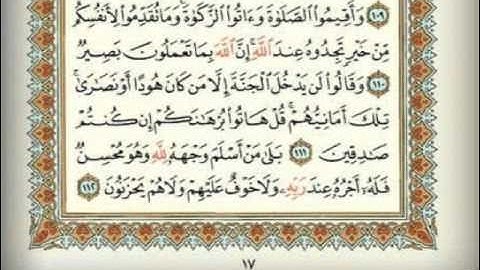 ١٠٩ وَأَقِيمُوا۟ ٱلصَّلَوٰةَ وَءَاتُوا۟ ٱلزَّكَوٰةَ ۚ وَمَا تُقَدِّمُوا۟ لِأَنفُسِكُم
مِّنْ خَيْرٍ تَجِدُوهُ عِندَ ٱللَّهِ ۗ إِنَّ ٱللَّهَ بِمَا تَعْمَلُونَ بَصِيرٌ
١١٠ وَقَالُوا۟ لَن يَدْخُلَ ٱلْجَنَّةَ إِلَّا مَن كَانَ هُودًا أَوْ نَصَـٰرَىٰ ۗ
تِلْكَ أَمَانِيُّهُمْ ۗ قُلْ هَاتُوا۟ بُرْهَـٰنَكُمْ إِن كُنتُمْ
صَـٰدِقِينَ ١١١ بَلَىٰ مَنْ أَسْلَمَ وَجْهَهُۥ لِلَّهِ وَهُوَ مُحْسِنٌ
فَلَهُۥٓ أَجْرُهُۥ عِندَ رَبِّهِۦ وَلَا خَوْفٌ عَلَيْهِمْ وَلَا هُمْ يَحْزَنُونَ ١١٢
١٧